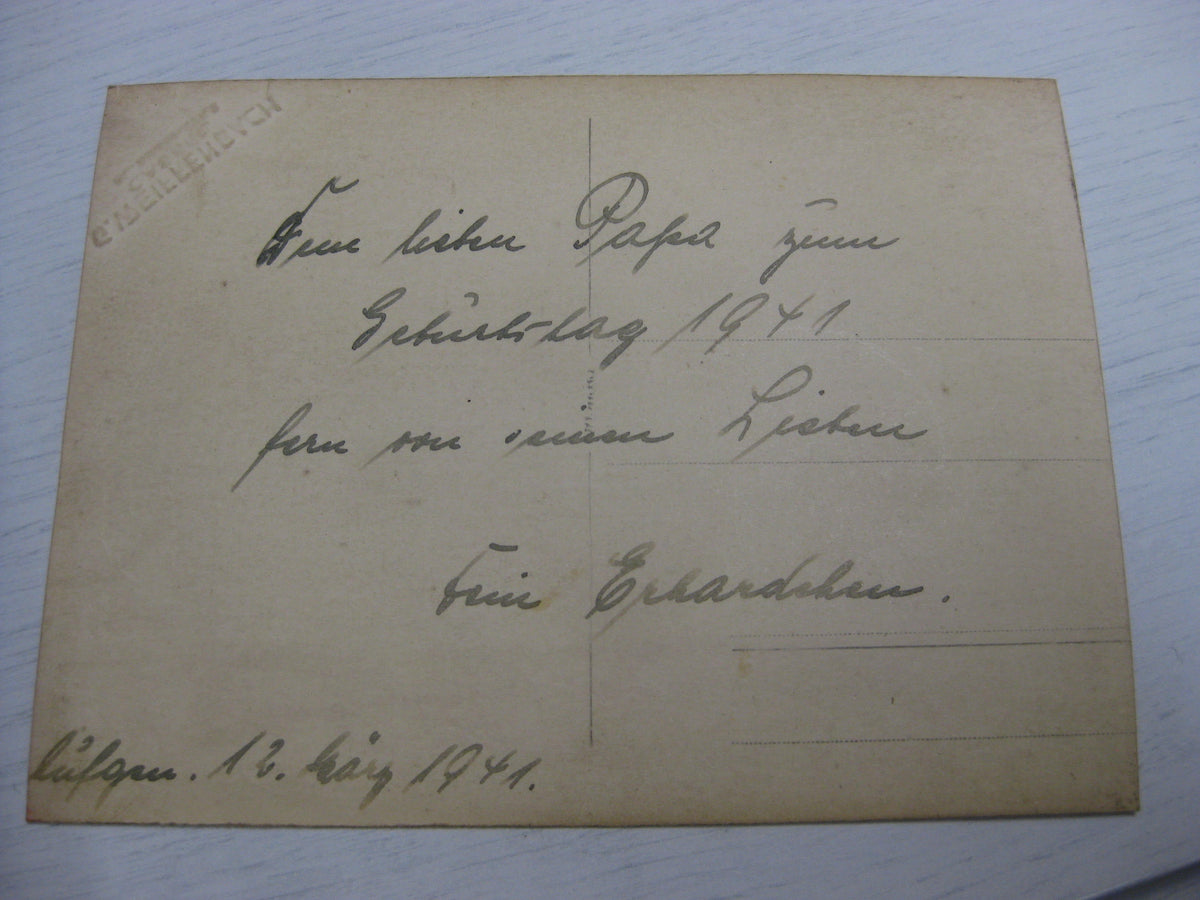 Dem lieben Papa zum
Geburtstag 1941
fern von seinen Lieben
Dein Erhardchen.
12. März 1941.